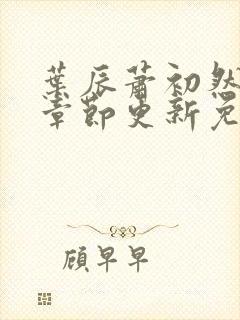 葉辰蕭初然
章節更新免
顧早早